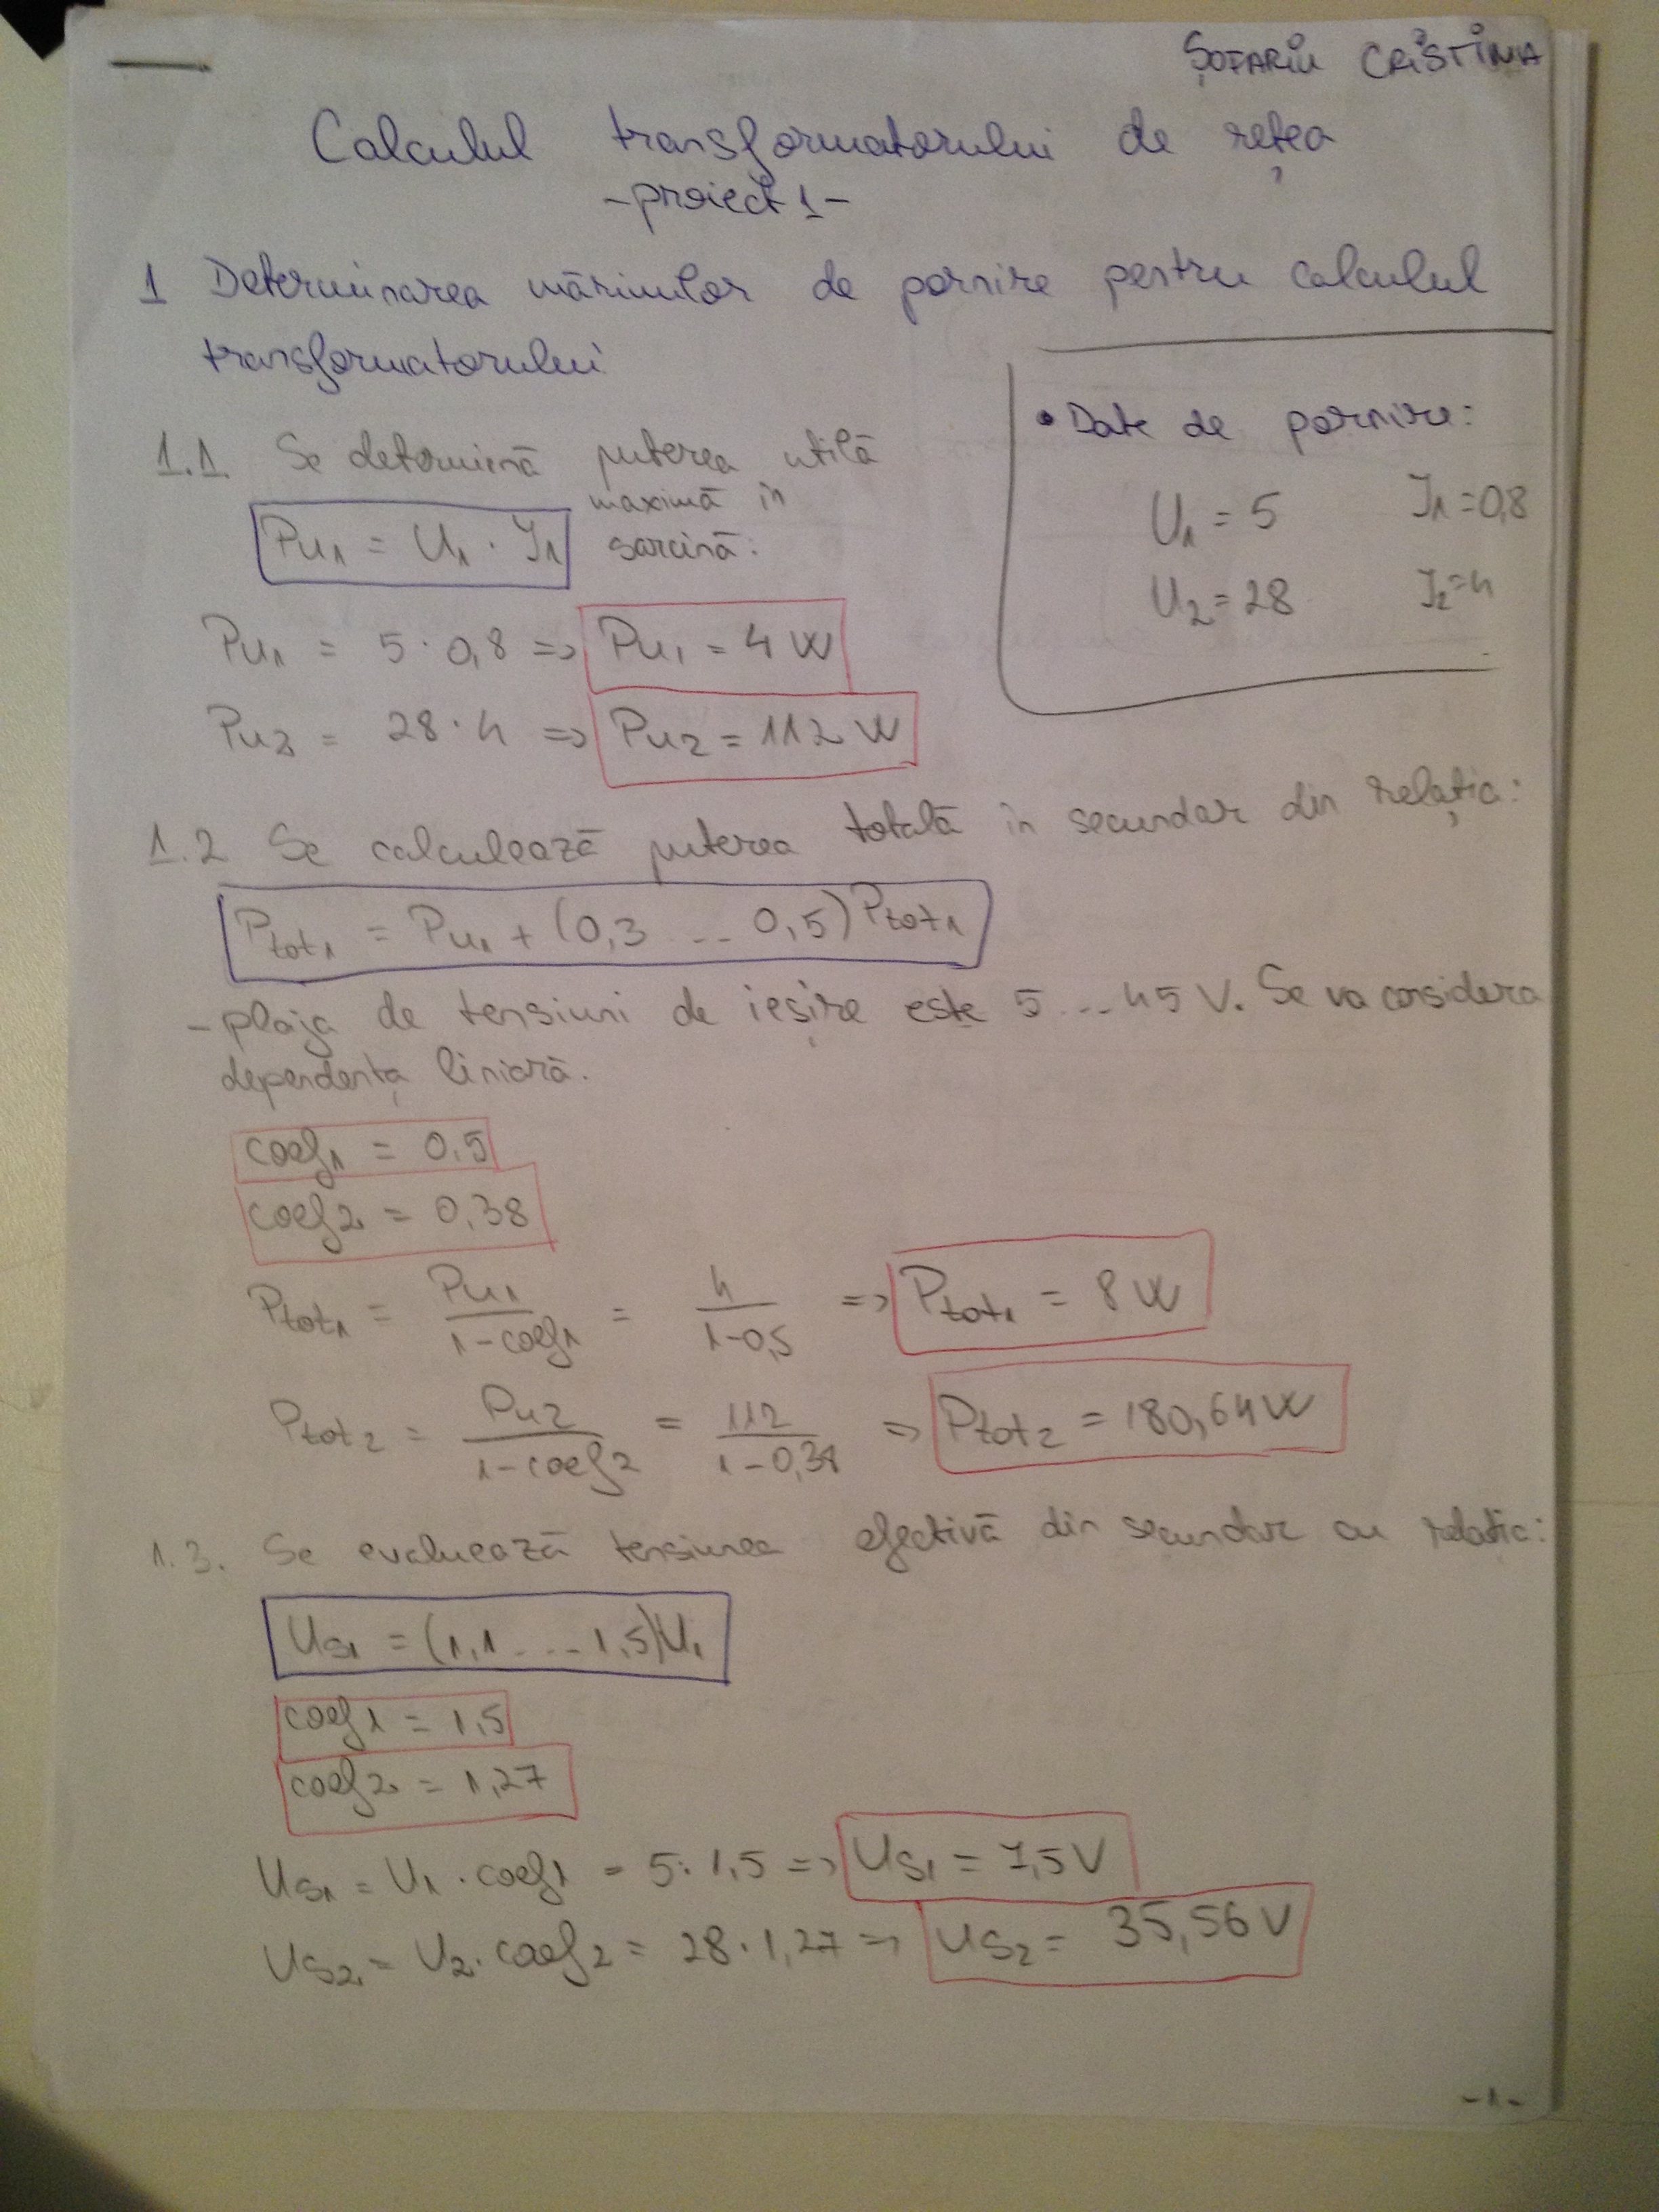 ȘOFARIU CRISTINA
Calculul transformatorului de rețea
-proiect 1-
1 Determinarea mărimilor de pornire pentru calculul
transformatorului
• Date de pornire:
U1 = 5 I1 = 0,8
U2 = 28 I2 = 4
1.1. Se determină puterea utilă
maximă în
Pu1 = U1 · I1 sarcină:
Pu1 = 5 · 0,8 => Pu1 = 4 W
Pu2 = 28 · 4 => Pu2 = 112 W
1.2 Se calculează puterea totală în secundar din relația:
Ptot1 = Pu1 + (0,3 ... 0,5) Ptot1
- plaja de tensiuni de ieșire este 5 ... 45 V. Se va considera
dependența liniară.
coef1 = 0.5
coef2 = 0,38
Ptot1 = Pu1 / (1-coef1) = 4 / (1-0,5) => Ptot1 = 8 W
Ptot2 = Pu2 / (1-coef2) = 112 / (1-0,38) => Ptot2 = 180,64 W
1.3. Se evaluează tensiunea efectivă din secundar cu relația:
Us1 = (1,1 ... 1,5)U1
coef1 = 1,5
coef2 = 1,27
Us1 = U1 · coef1 = 5 · 1,5 => Us1 = 7,5 V
Us2 = U2 · coef2 = 28 · 1,27 => Us2 = 35,56 V
-1-